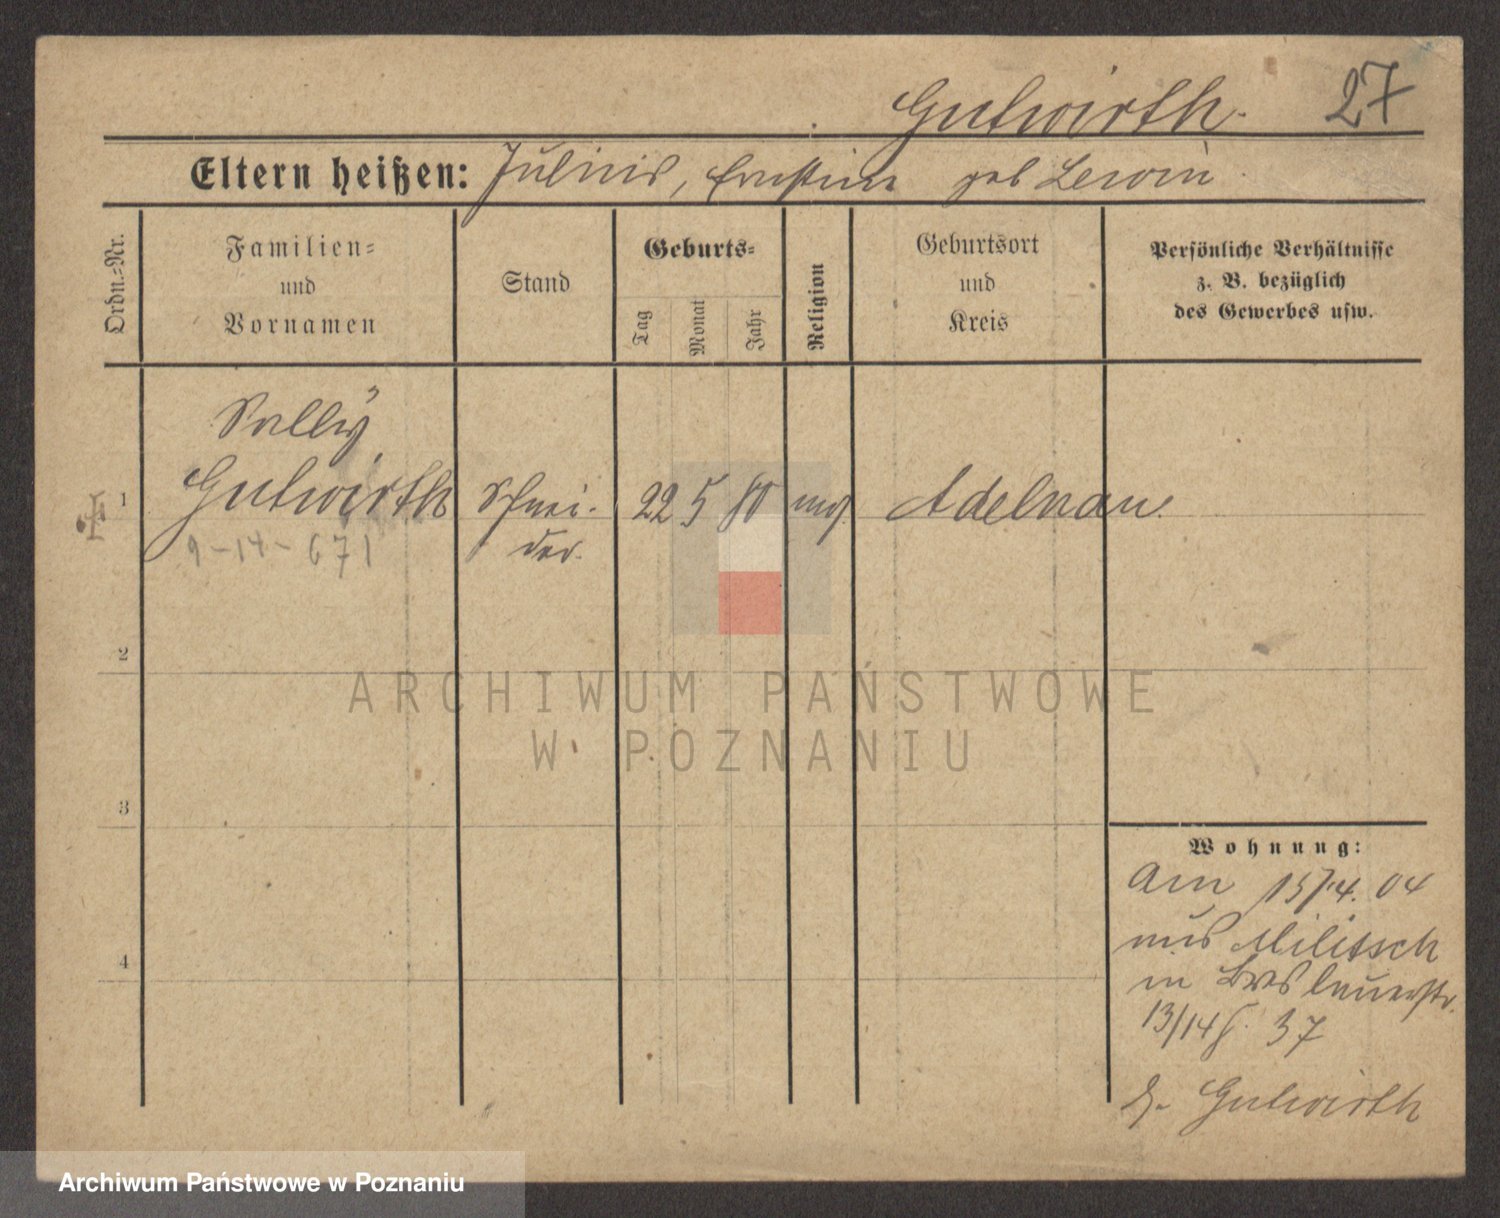 Gutwirth. 27
Eltern heißen: Julius, Ernstine geb Lewin
Ordn.-Nr.
Familien-
und
Vornamen
Stand
Geburts-
Tag
Monat
Jahr
Religion
Geburtsort
und
Kreis
Persönliche Verhältnisse
z. B. bezüglich
des Gewerbes usw.
Sally
1 Gutwirth Schnei- 22 5 80 mos Adelnau.
der.
9-14-671
2
3
4
Wohnung:
Am 15/4. 04
aus Militsch
in Breslauerstr.
13/14 37
Gutwirth
ARCHIWUM PAŃSTWOWE
W POZNANIU
Archiwum Państwowe w Poznaniu